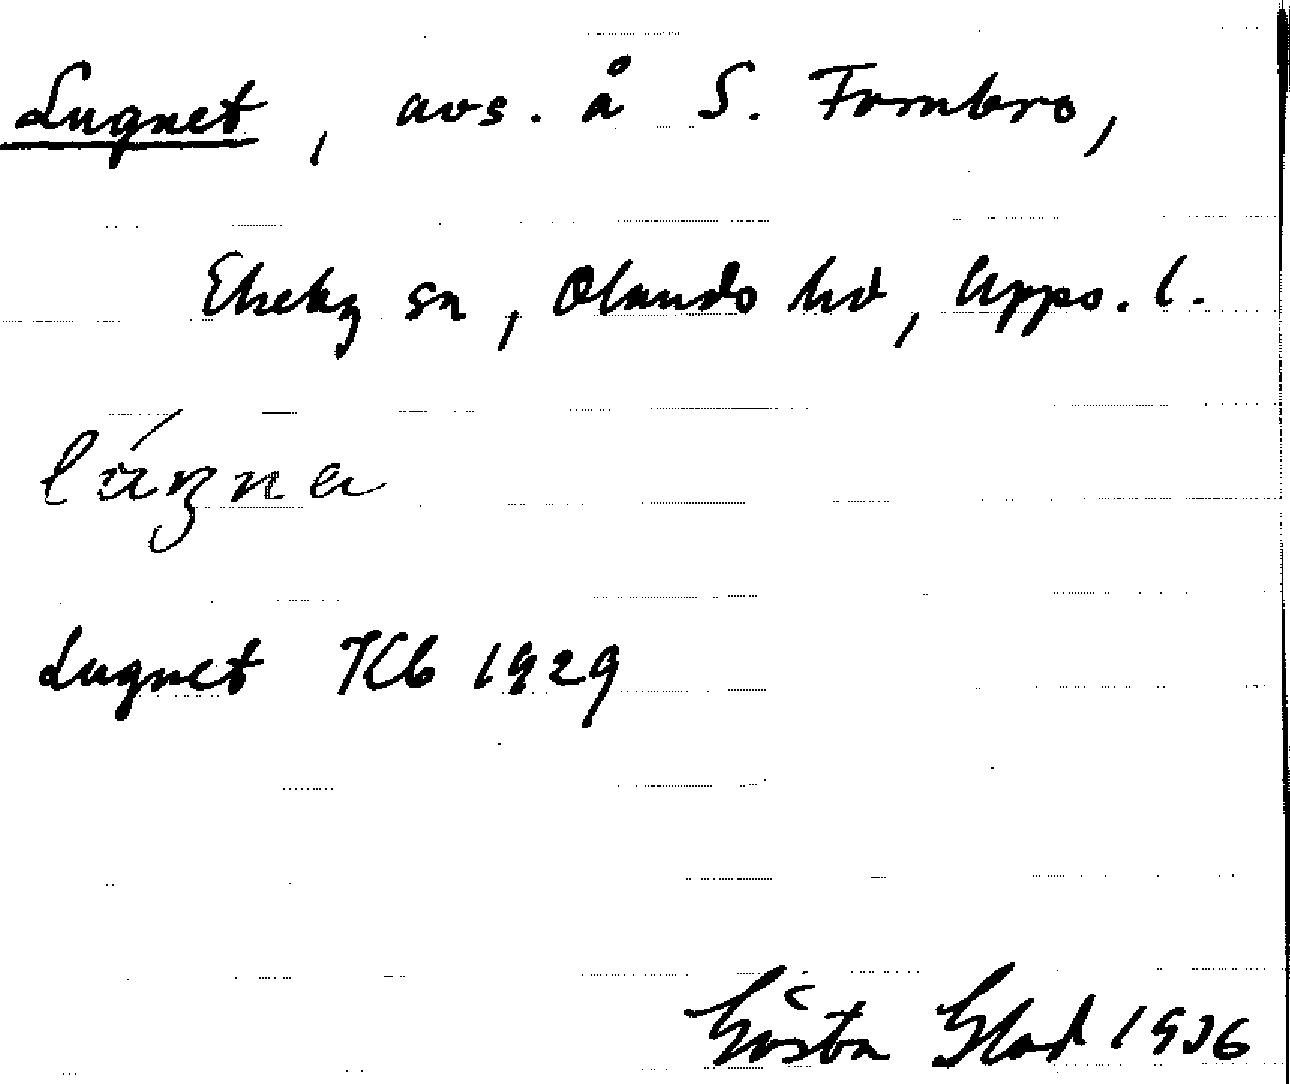 Lugnet, avs. å S. Fornbro,
Ekeby sn, Olands hd, Upps. l.
Lugnet Kb 1929
Gösta Glad 1936